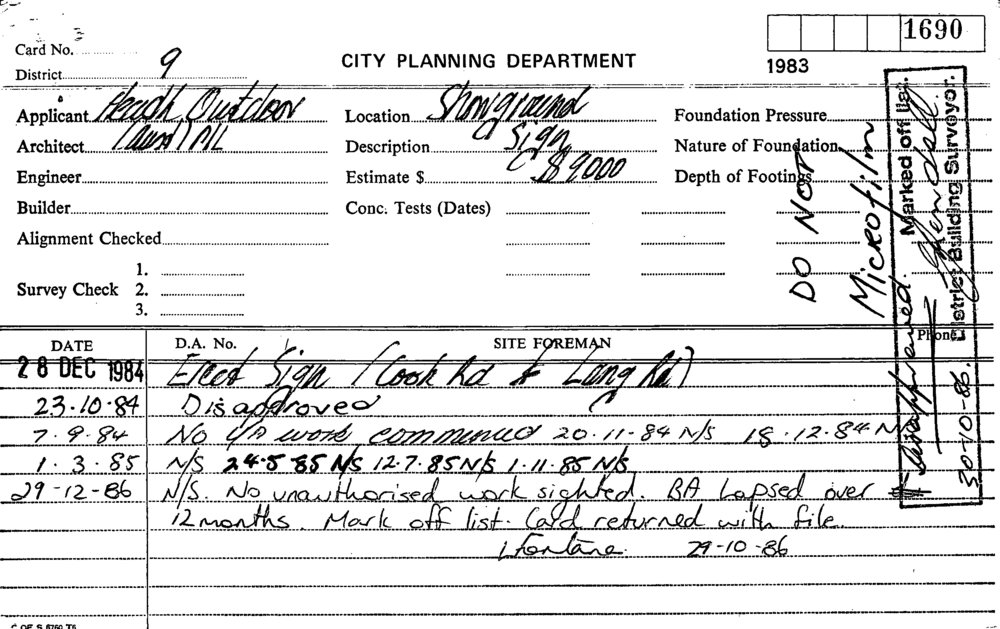 1690
Card No.
1983
District 9
CITY PLANNING DEPARTMENT
Applicant Heath Outdoor
Location Showground
Foundation Pressure
Architect (Aust) P/L
Description Sign
Nature of Foundation
Engineer
Estimate $ $9000
Depth of Footings
Builder
Conc. Tests (Dates)
Alignment Checked
1.
Survey Check 2.
3.
DO NOT
Microfilm
Marked off list.
Disapproved.
District Building Surveyor.
30-10-86.
DATE D.A. No. SITE FOREMAN Phone
28 DEC 1984 Erect Sign (Cook Rd & Lang Rd)
23.10.84 Disapproved
7.9.84 No work commenced 20.11.84 N/S 18.12.84 N
1.3.85 N/S 24.5 85 N/S 12.7.85 N/S 1.11.85 N/S
29-12-86 N/S. No unauthorised work sighted. BA Lapsed over
12 months. Mark off list. Card returned with file.
LFontane. 29-10-86
C OF S 5750 T5